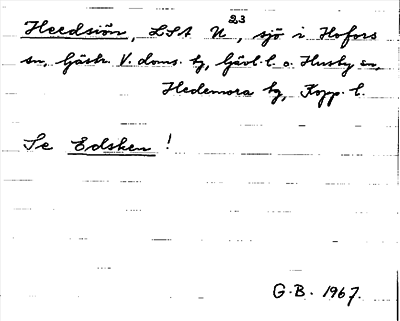 Heedsiön, LSA U 23, sjö i Hofors
sn, Gästr. V. doms. tg, Gävl. l. o. Husby sn,
Hedemora tg, Kopp. l.
Se Edsken!
G.B. 1967.